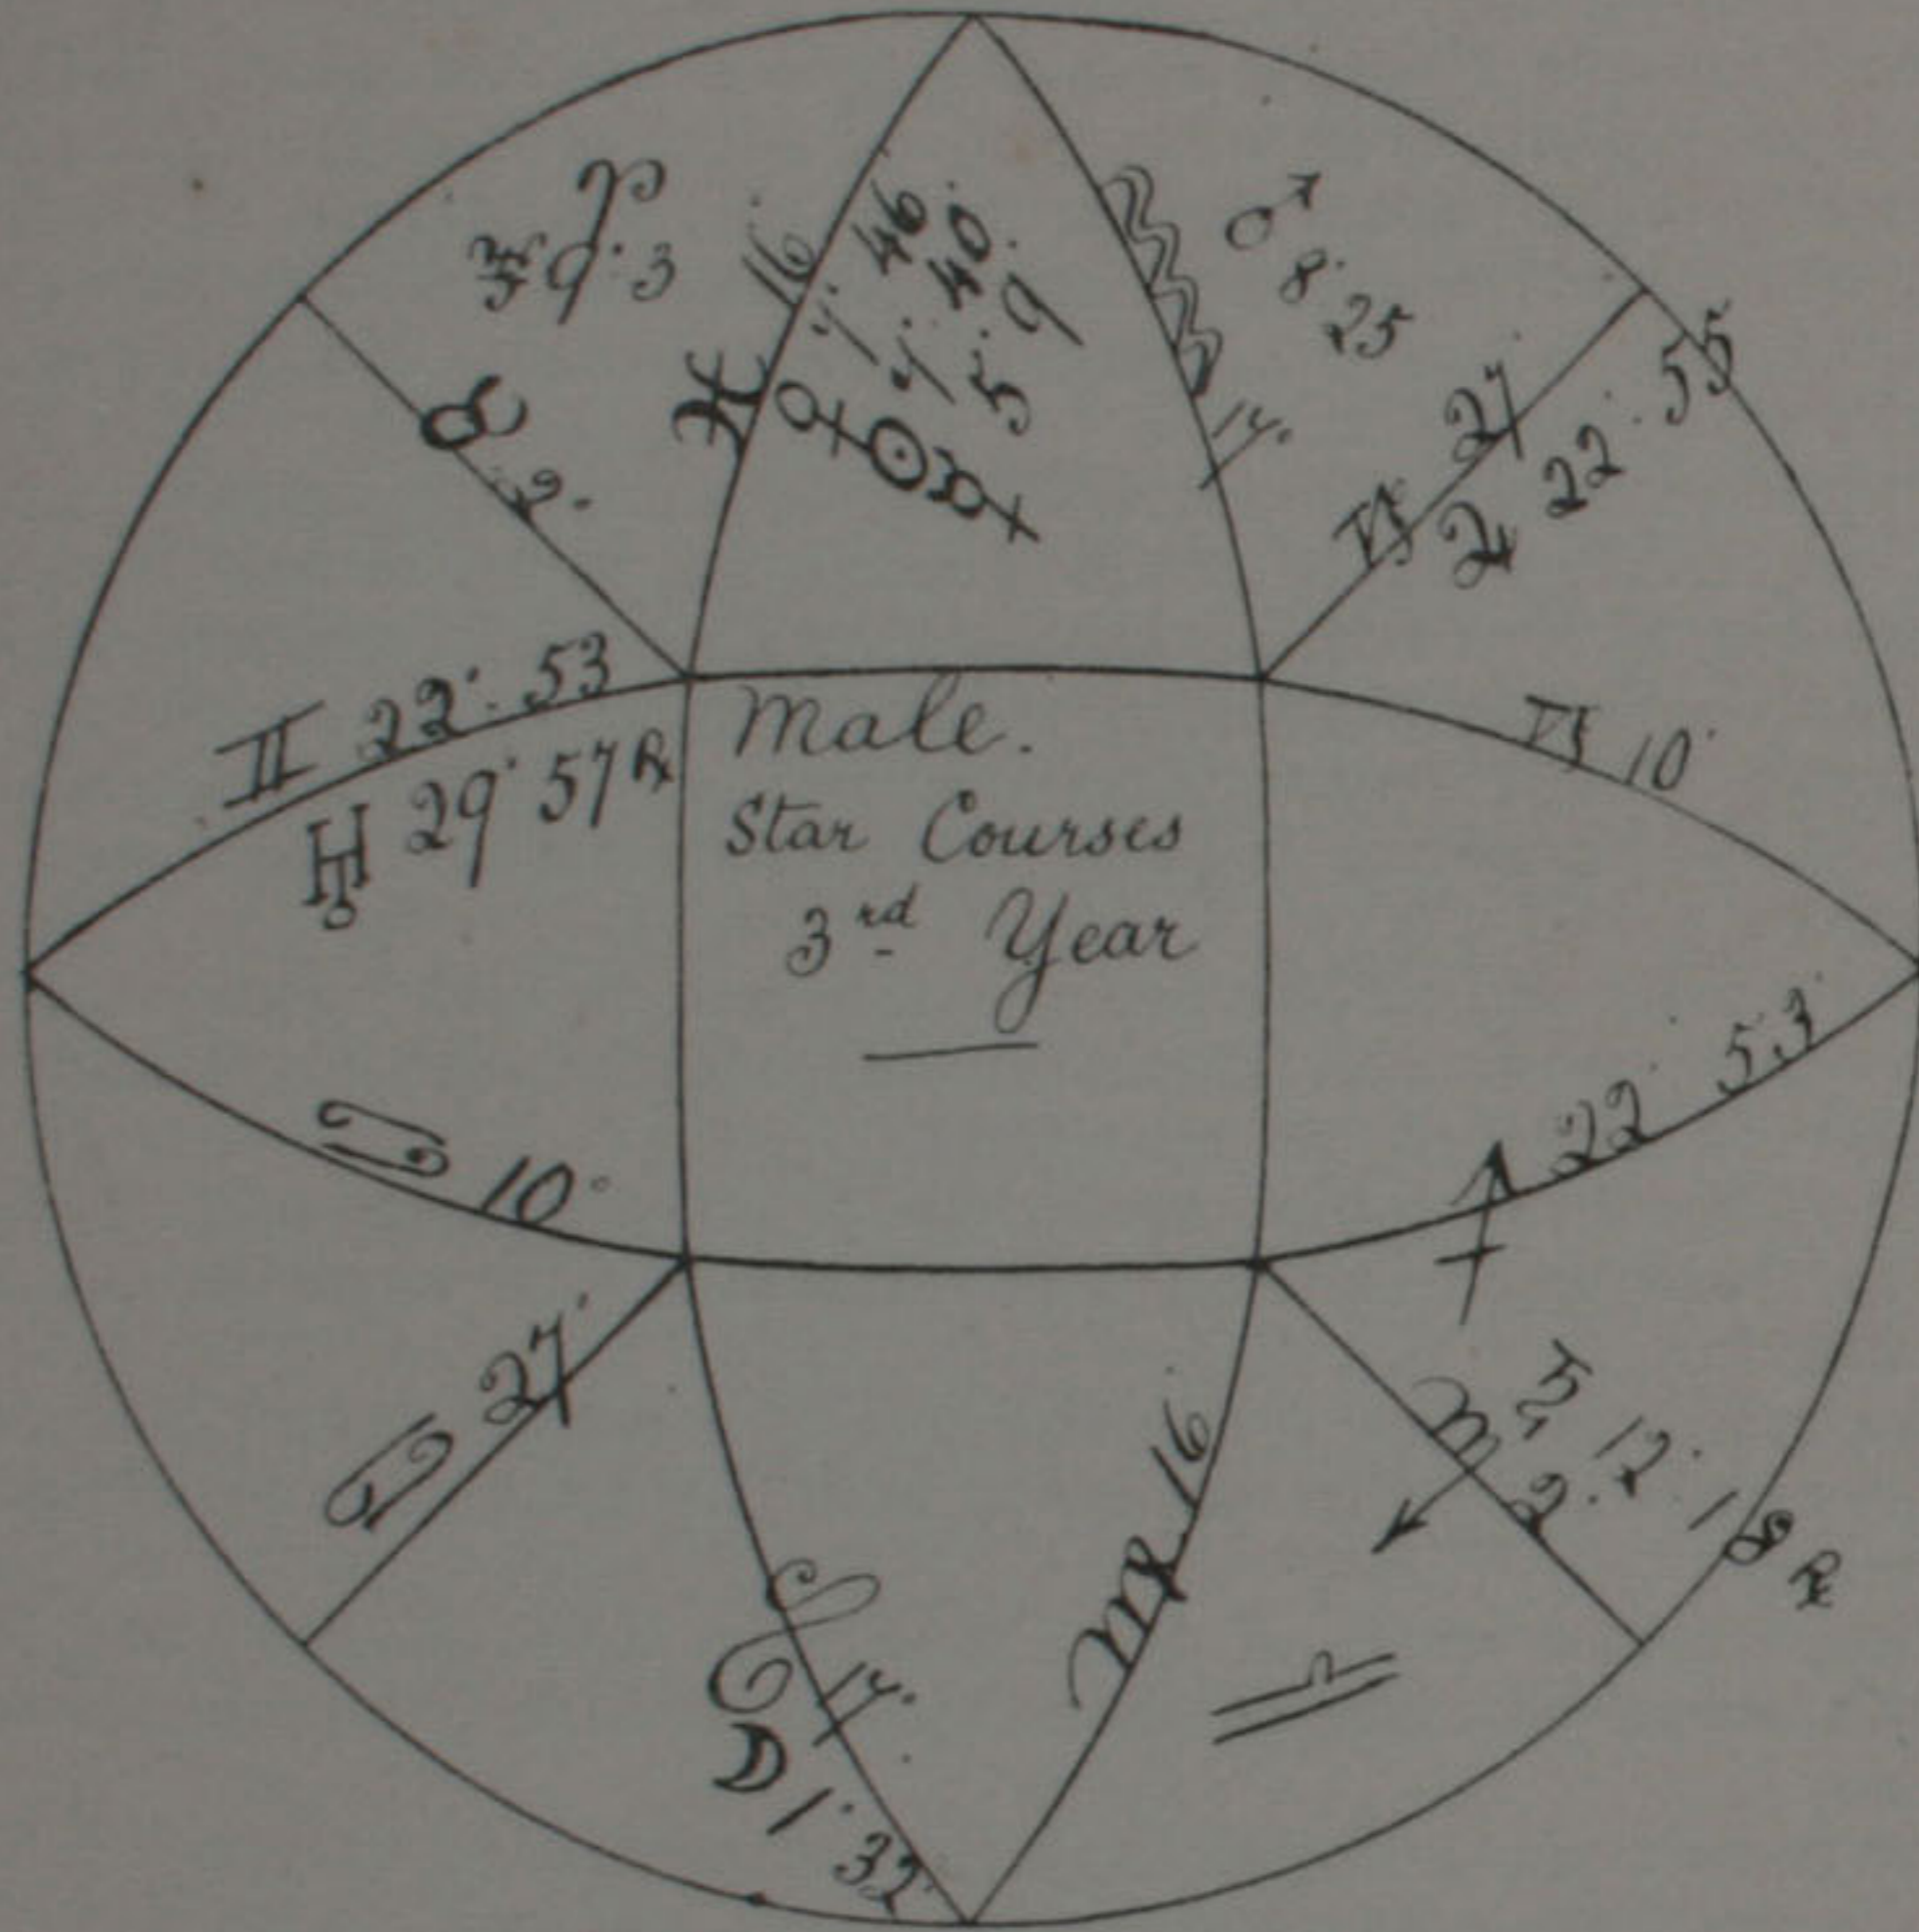 ♈
♆ 9° 3
♓ 16°
♀ 7° 46
☉ 7° 40
☿ 5° 9
♒ 17°
♂ 8° 25
♑ 27
♃ 22° 55
♉ 2°
♊ 22° 53
♅ 29° 57 ℞
Male.
Star Courses
3rd Year
♑ 10°
♋ 10°
♐ 22° 53
♋ 27°
♄ 12° 18 ℞
♏ 2°
♌ 17°
☽ 1° 32
♍ 16
♎